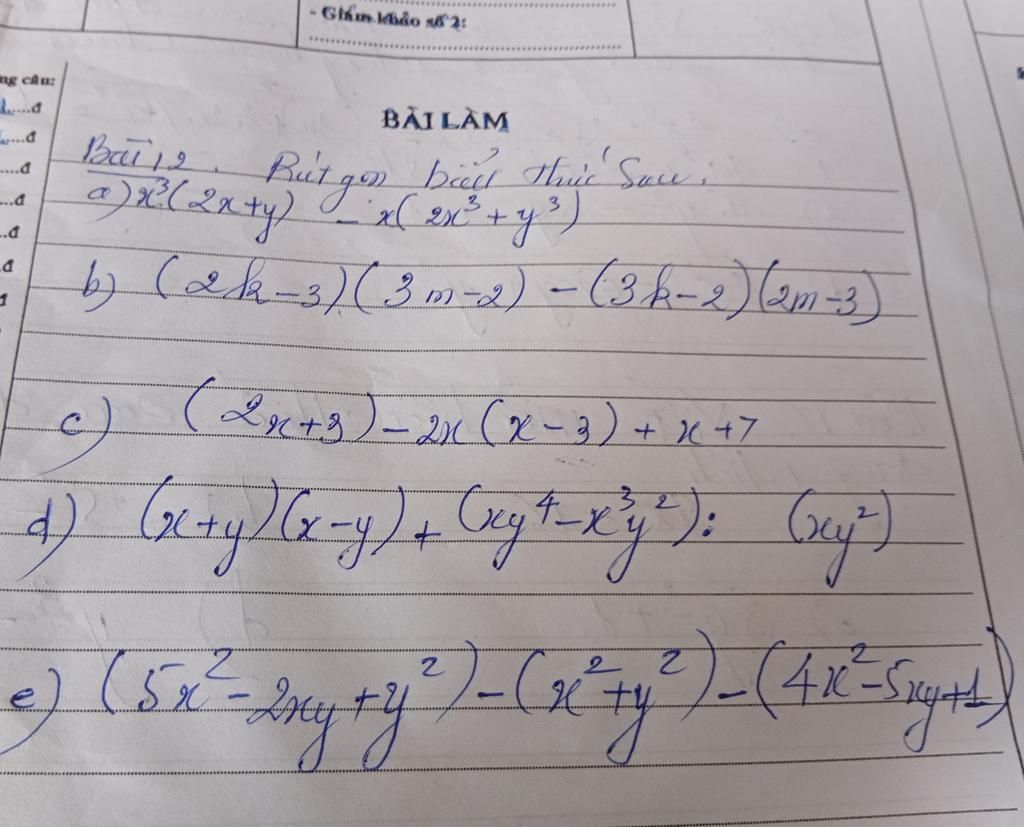 - Giám khảo số 2:
ng câu:
đ
đ
đ
đ
đ
đ
BÀI LÀM
Bài 12. Rút gọn biểu thức sau:
a) x³(2x+y) - x(2x³+y³)
b) (2k-3)(3m-2) - (3k-2)(2m-3)
c) (2x+3) - 2x(x-3) + x+7
d) (x+y)(x-y) + (xy⁴-x³y²): (xy²)
e) (5x²-2xy+y²) - (x²+y²) - (4x²-5xy+1)